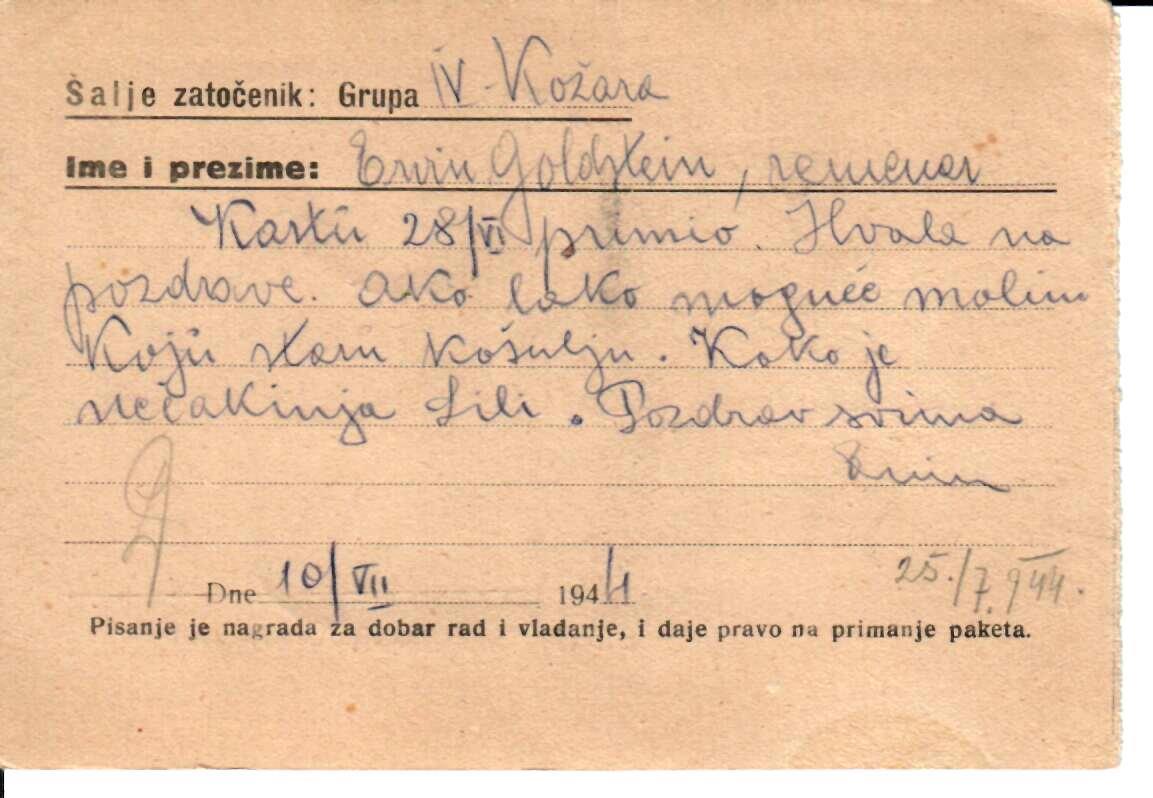 Šalje zatočenik: Grupa IV - Kožara
Ime i prezime: Ervin Goldstein, remenar
Kartu 28/VI primio. Hvala na
pozdrave. Ako lako moguće molim
Koju staru košulju. Kako je
nećakinja Lili. Pozdrav svima
Ervin
Dne 10/VII 1944
25./7.944.
Pisanje je nagrada za dobar rad i vladanje, i daje pravo na primanje paketa.